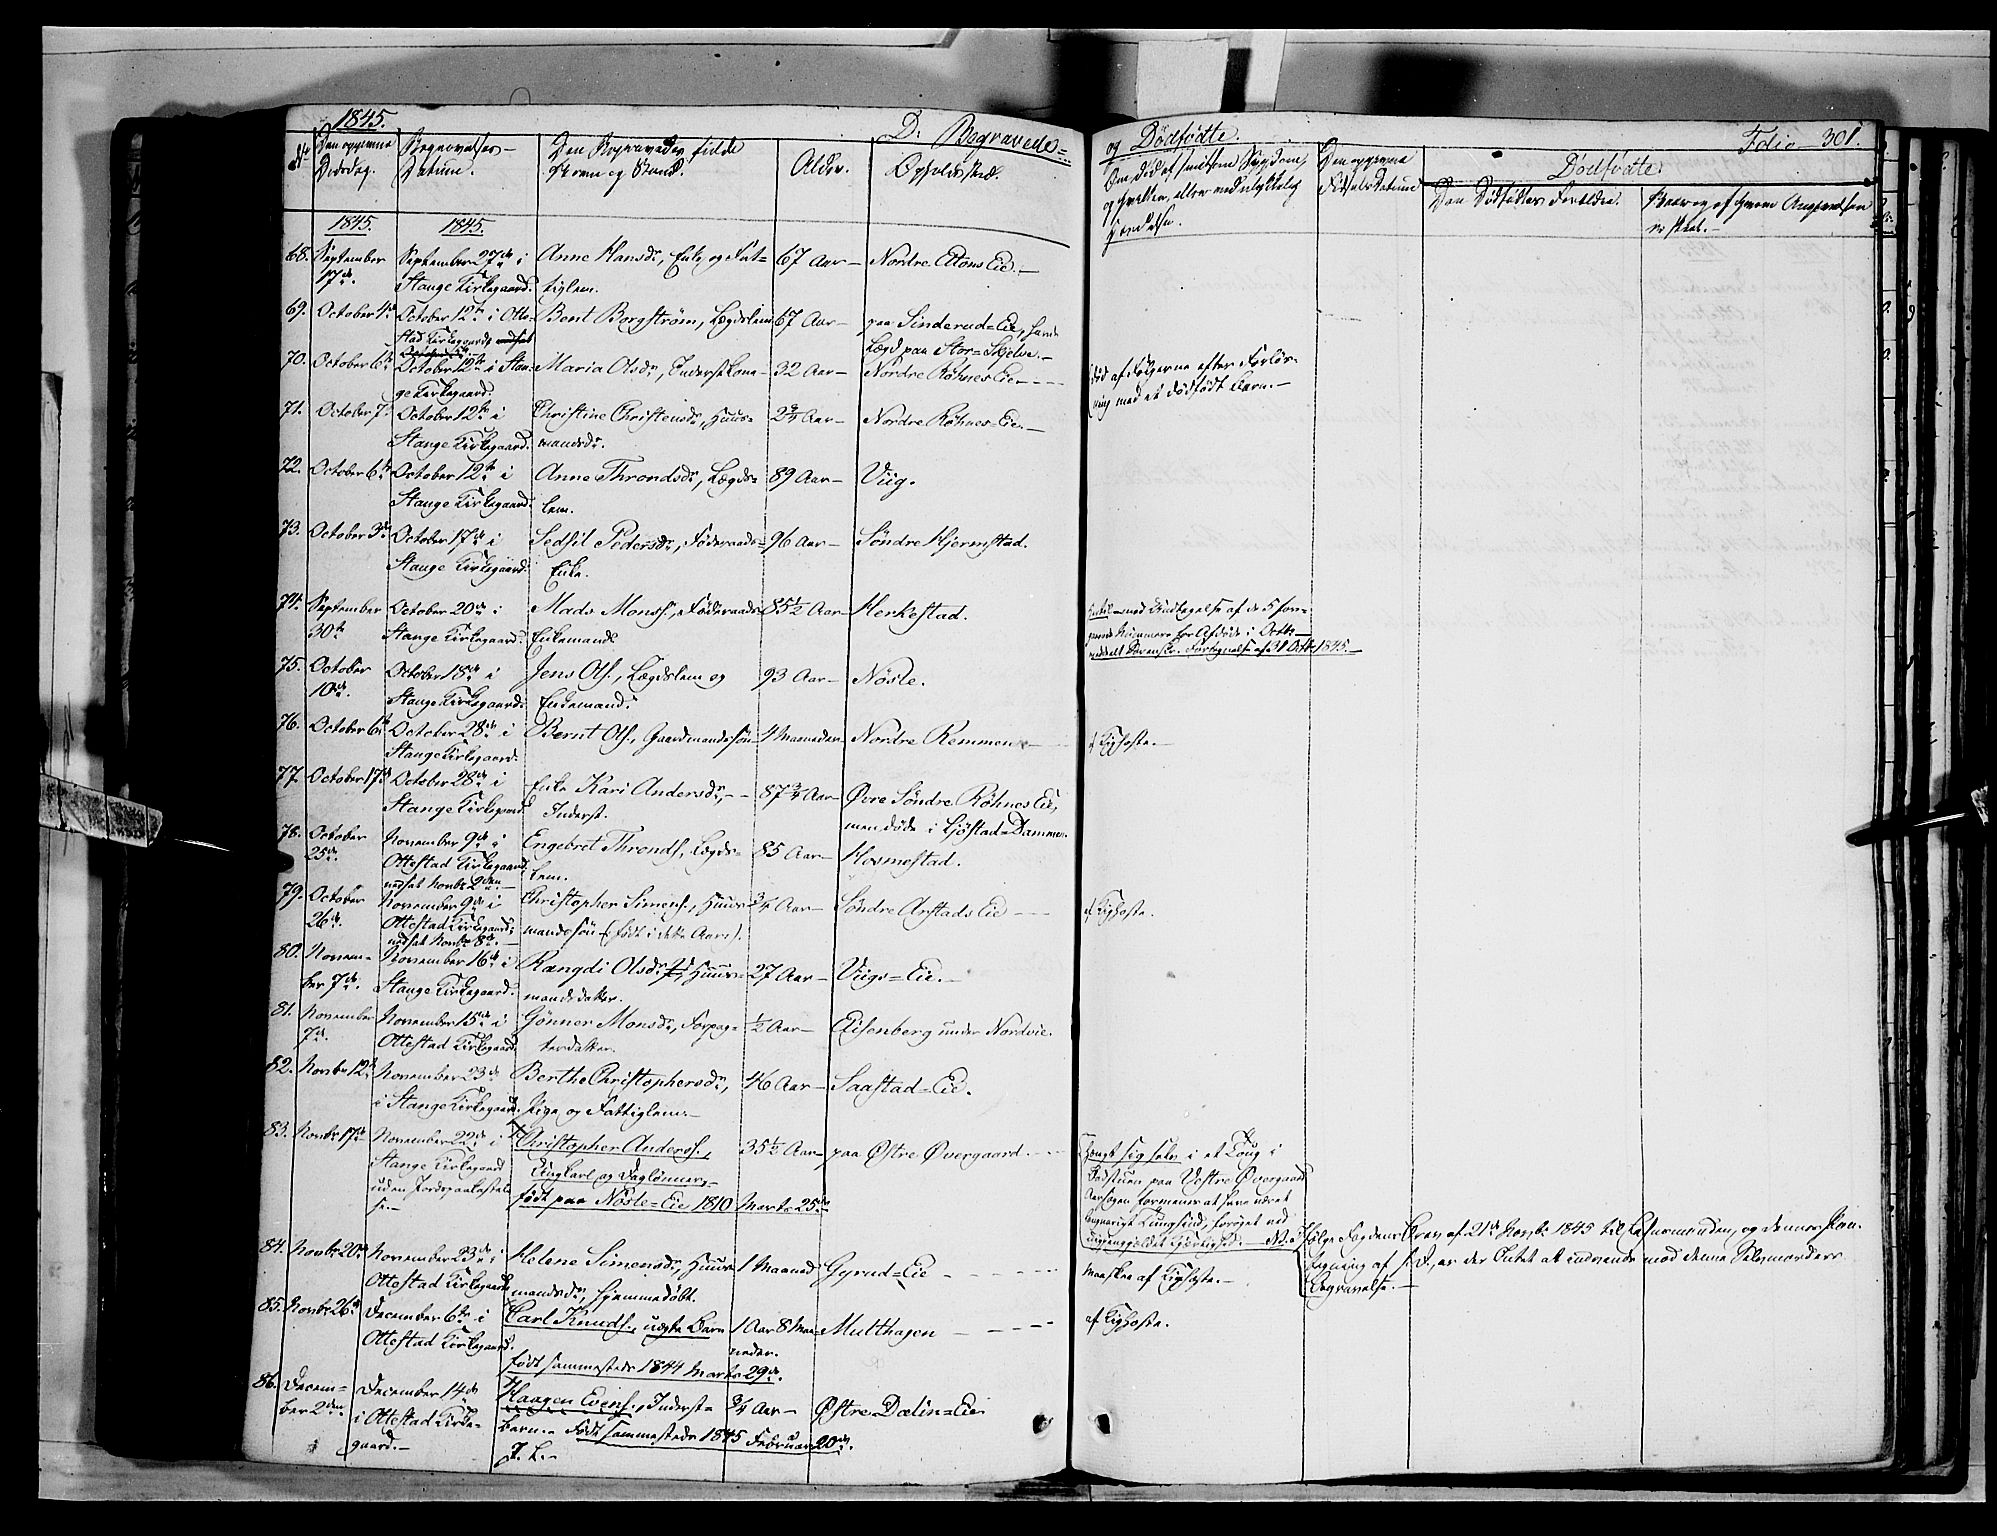 1845.
D. Begravede
og Dødfødte.
Folio 301.
No
Den opgivne
Dødsdag.
Begravelses-
Datum.
Den Begravedes fulde
Navn og Stand.
Alder.
Opholdssted.
Om død af smitsom Sygdom,
og hvilken, eller ved ulykkelig
Hændelse.
Den opgivne
Fødselsdatum
Dødfødte.
Den Dødfødtes Forældre.
1845.
1845.
68. September
17de.
September 27de i
Stange Kirkegaard.
Anne Hansdr, Enke og Fat=
tiglem.
67 Aar—
Nordre Ettens Eie.—
69. October 4de
October 12te i Otte-
stad Kirkegaard,
Bent Borgström, Lægdslem
67 Aar—
paa Sinderud=Eie,
Lægd paa Stor=Skjelve.—
70. October 6te
October 12te i Stan-
ge Kirkegaard.
Maria Olsdr, Inderstkone—
32 Aar—
Nordre Röhnes Eie.
død af Følgerne efter Forløs-
ning med et dödfödt Barn.—
71. October 7.
October 12te i
Stange Kirkegaard.
Christine Christensdr, Huus-
mandsdr.
2 3/4 Aar—
Nordre Röhnes-Eie.—
72. October 6te
October 12te i
Stange Kirkegaard.
Anne Throndsdr, Lægds=
lem.
89 Aar—
Viig.
73. October 3de
October 17de i
Stange Kirkegaard.
Sedsil Pedersdr, Föderaads=
Enke.
96 Aar—
Söndre Hjermstad.
74. September
30te
October 20de i
Stange Kirkegaard.
Mads Monss., Föderaads
Enkemand.
85 1/2 Aar—
Herkestad.
af de 5 fore-
Numere for Afdøde i Octbr
Fortegnelse af 31 Octbr 1845.—
75. October
10de.
October 18de i
Stange Kirkegaard.
Jens Ols., Lægdslem og
Enkemand.
93 Aar—
Nösle.
76. October 6te
October 28de i
Stange Kirkegaard.
Bernt Ols., Gaardmandssön
4 Maaneder
Nordre Remmen
af Kighoste.—
77. October 17de
October 28de i
Stange Kirkegaard
Enke Kari Andersdr,
Inderst.
87 3/4 Aar—
Övre Söndre Röhnes Eie,
men døde i Ljöstad=Dammen.
78. October
25de.
November 9de i
Ottestad Kirkegaard.
nedsat Novbr 2den.—
Engebret Thronds., Lægds-
lem.
85 Aar—
Hosmestad.
79. October
26de.
November 9de i
Ottestad Kirkegaard.
nedsat Novbr 8de.—
Christopher Simens., Huus-
mandssön (födt i dette Aar).
3/4 Aar—
Söndre Arstads Eie
af Kighoste.
80. Novem-
ber 7de.
November 16de i
Stange Kirkegaard.
Rangdi Olsdr, Huus=
mandsdatter.
27 Aar—
Viigs=Eie.—
81. November
7de.
November 15de i
Ottestad Kirkegaard
Gönner Monsdr, Forpag-
terdatter.
1/2 Aar—
Eisenberg under Nordvie.
82. Novbr 12te
November 23de
i Stange Kirkegaard.
Berthe Christophersdr,
Pige og Fattiglem.—
46 Aar—
Saastad=Eie.
83. Novbr 17de
November 22de i
Stange Kirkegaard
uden Jordspaakastel-
se.—
Christopher Anders.,
Ungkarl og Daglönner,
födt paa Nösle=Eie 1810 Marts 25de
35 1/2 Aar—
paa Östre Övergaard.
hengt sig selv i et Toug i
Badstuen paa Vestre Övergaard
Aarsagen formenes at have været
Tungsind, forøget ved
Kjærlighed.— NB. Ifölge Fogdens Brev af 21de Novbr 1845 til Lehnsmanden, og dennes Paa-
tegning af s. D., er der Intet at indvende mod denne Selvmorders
Begravelse.—
84. Novbr 20de
November 23de i
Ottestad Kirkegaard
Helene Simensdr, Huus-
mandsdr, hjemmedöbt.
1 Maaned
Gyrud=Eie
Maaskee af Kighoste.—
85. Novbr 26de
December 6te i
Ottestad Kirkegaard.
Carl Knuds., uægte Barn
födt sammesteds 1844 Marts 29de.
1 Aar 8 Maa-
neder.
Multhagen
af Kighoste.
86. Decem=
ber 2den
December 14de
i Ottestad Kirke-
gaard.—
Haagen Evens., Inderst-
barn.— Födt sammesteds 1845 Februar 20de.
3/4 Aar—
Östre Dælin=Eie